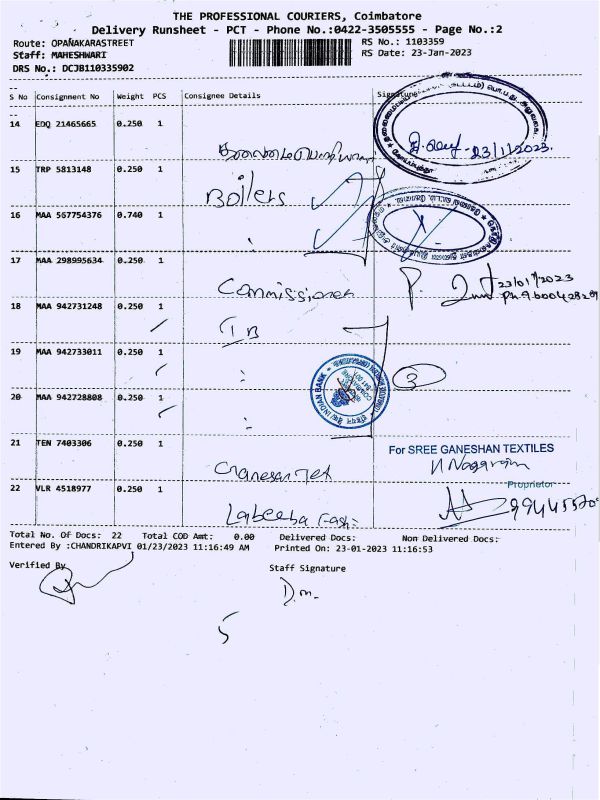 THE PROFESSIONAL COURIERS, Coimbatore
Delivery Runsheet - PCT - Phone No.:0422-3505555 - Page No.:2
Route: OPANAKARASTREET
RS No.: 1103359
Staff: MAHESHWARI
RS Date: 23-Jan-2023
DRS No.: DCJB110335902
S No Consignment No Weight PCS Consignee Details Signature
14 EDQ 21465665 0.250 1
23/1/2023
15 TRP 5813148 0.250 1
Boilers
16 MAA 567754376 0.740 1
17 MAA 298995634 0.250 1
Commissioner
23/01/2023
18 MAA 942731248 0.250 1
IB
19 MAA 942733011 0.250 1
3
INDIAN BANK
20 MAA 942728808 0.250 1
21 TEN 7403306 0.250 1
Ganesan Tex
For SREE GANESHAN TEXTILES
Proprietor
22 VLR 4518977 0.250 1
Labeeba
Total No. Of Docs: 22 Total COD Amt: 0.00 Delivered Docs: Non Delivered Docs:
Entered By :CHANDRIKAPVI 01/23/2023 11:16:49 AM Printed On: 23-01-2023 11:16:53
Verified By
Staff Signature
5